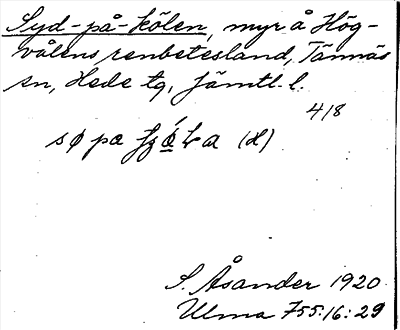 Syd-på-kölen, myr å Hög-
vålens renbetesland, Tännäs
sn, Hede tg, Jämtl. l.
4/8
(d)
S. Åsander 1920
Ulma 755:16:29